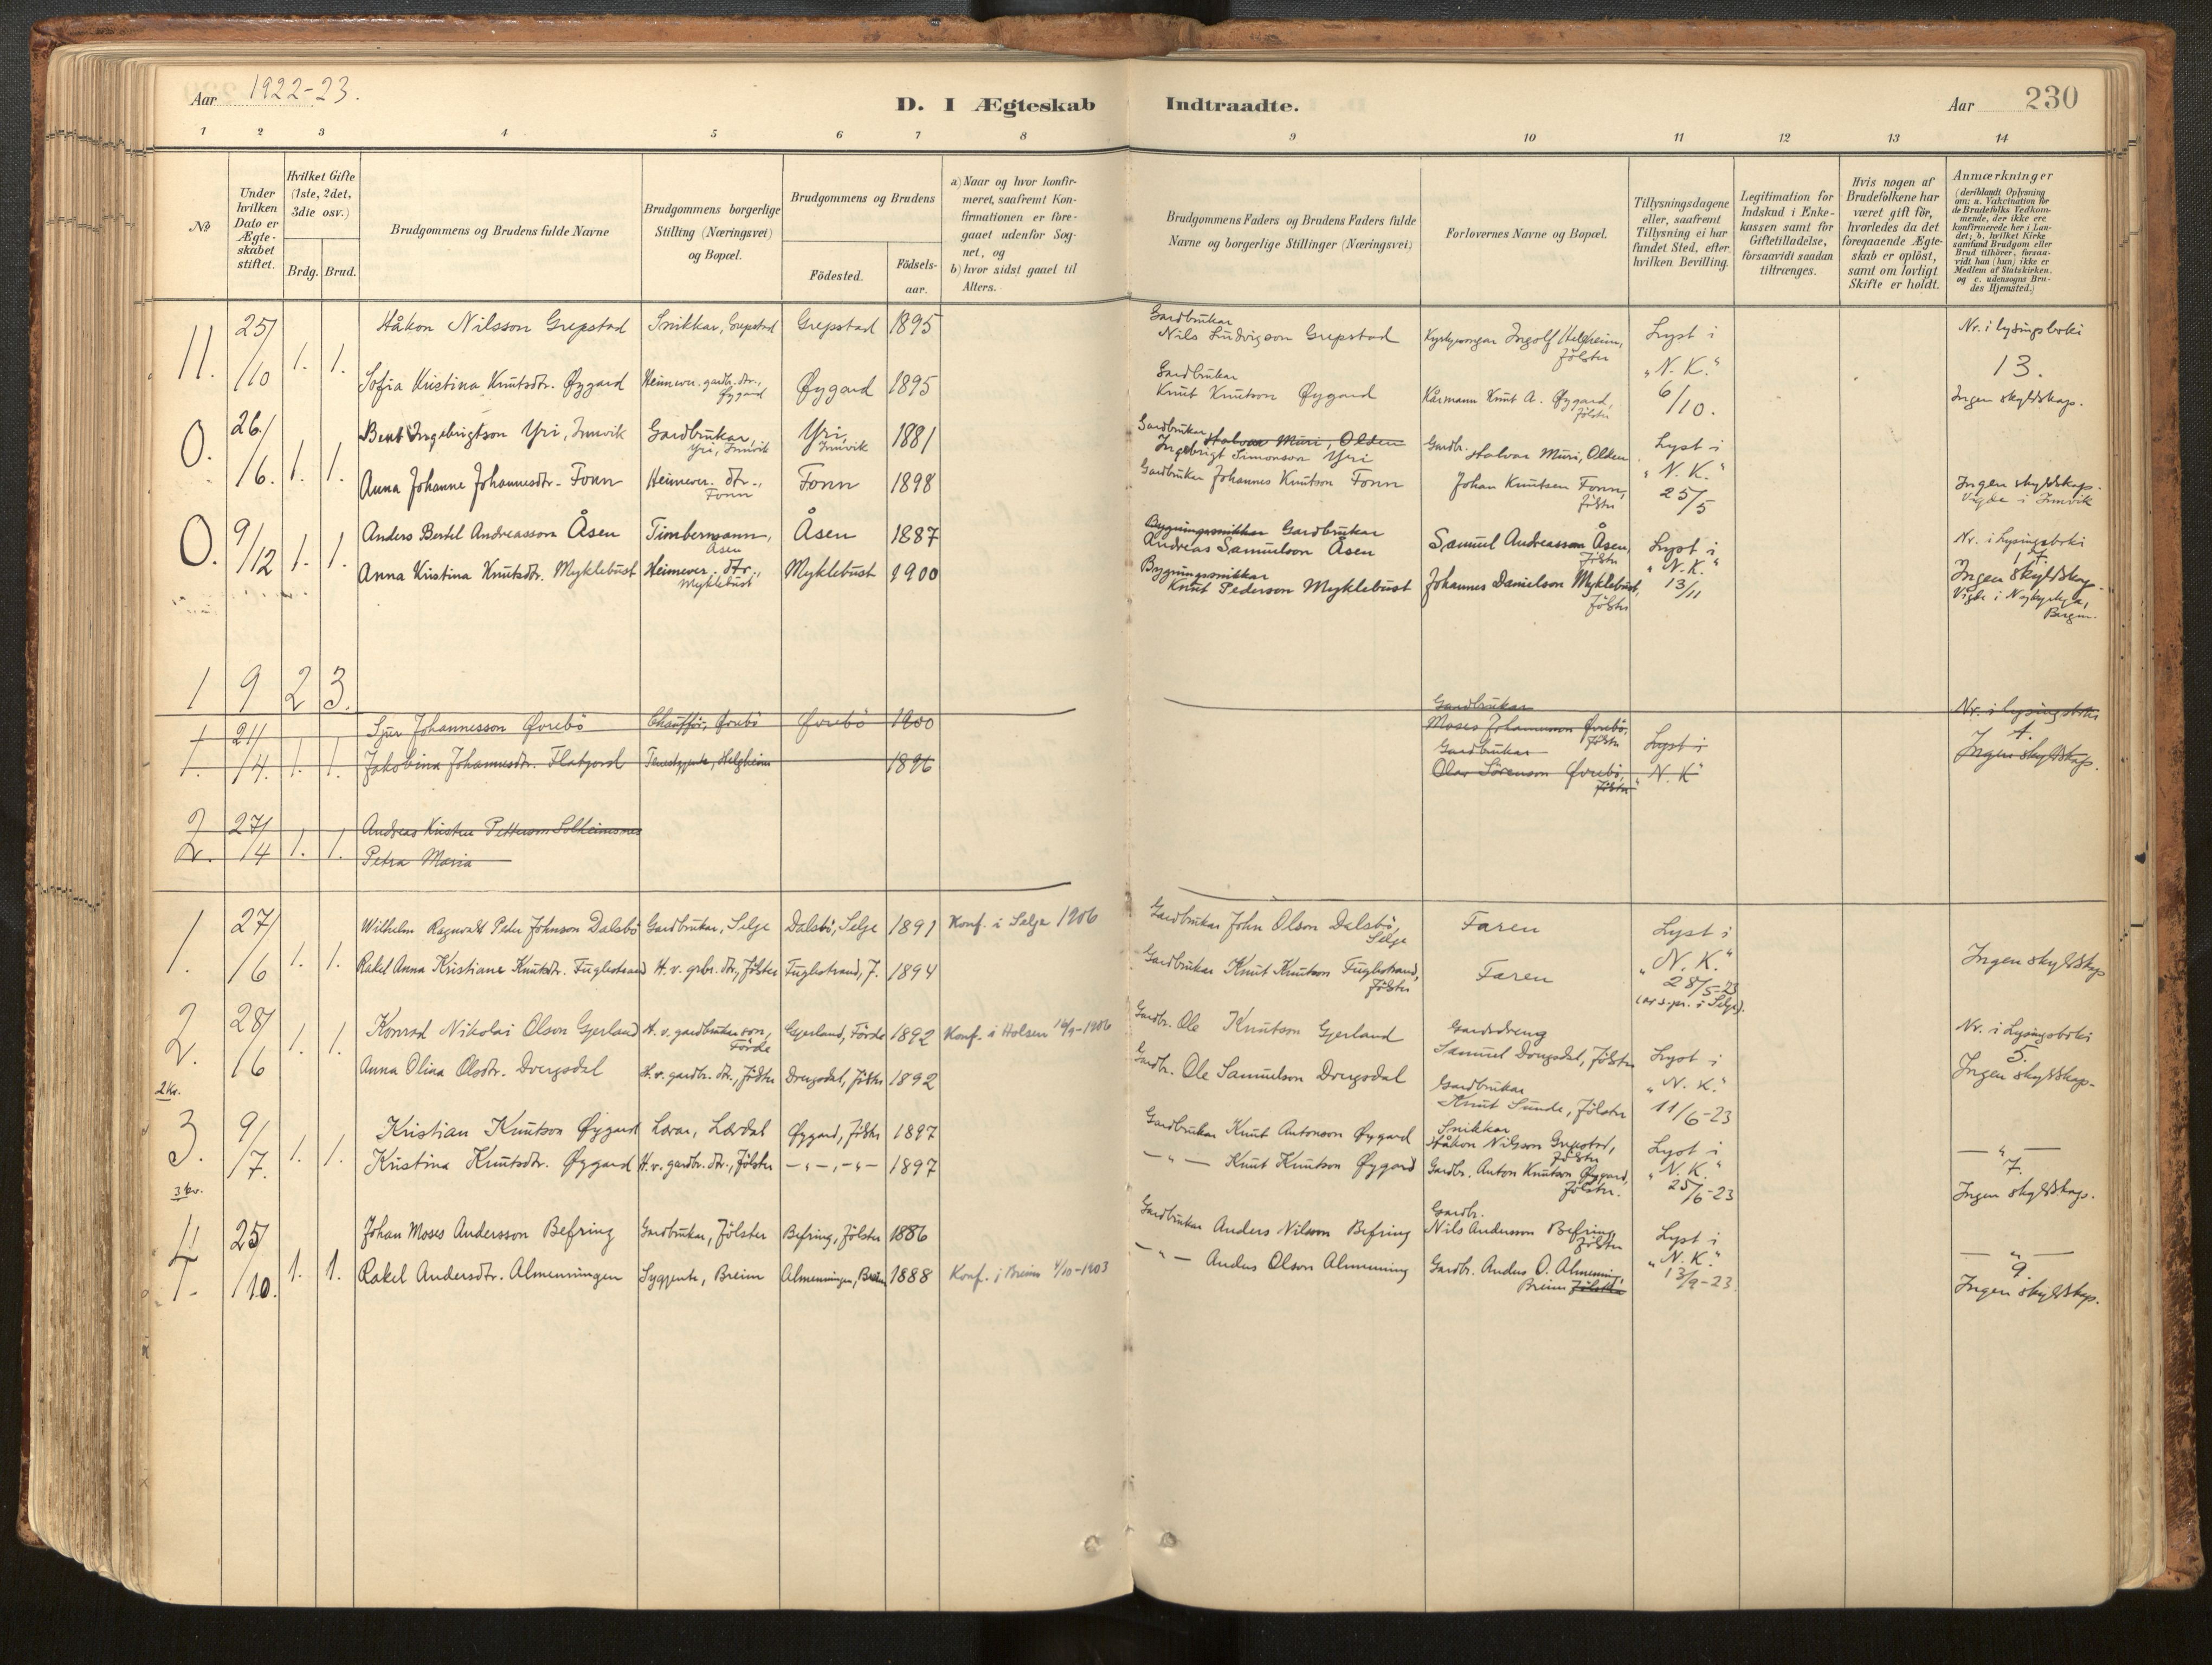 Aar 1922-23.
D. I Ægteskab Indtraadte.
Aar 230
1 2 3 4 5 6 7 8 9 10 11 12 13 14
No
Under hvilken Dato er Ægteskabet stiftet.
Hvilket Gifte (1ste, 2det, 3die osv.)
Brdg. Brud.
Brudgommens og Brudens fulde Navne
Brudgommens borgerlige Stilling (Næringsvei) og Bopæl.
Brudgommens og Brudens
Födested.
Födselsaar.
a) Naar og hvor konfirmeret, saafremt Konfirmationen er foregaaet udenfor Sognet, og
b) hvor sidst gaaet til Alters.
Brudgommens Faders og Brudens Faders fulde Navne og borgerlige Stillinger (Næringsvei)
Forlovernes Navne og Bopæl.
Tillysningsdagene eller, saafremt Tillysning ei har fundet Sted, efter hvilken Bevilling.
Legitimation for Indskud i Enkekassen samt for Giftetilladelse, forsaavidt saadan tiltrænges.
Hvis nogen af Brudefolkene har været gift för, hvorledes da det foregaaende Ægteskab er oplöst, samt om lovligt Skifte er holdt.
Anmærkninger
(deriblandt Oplysning om: a. Vakcination for de Brudefolks Vedkommende, der ikke ere konfirmerede her i Landet; b. hvilket Kirkesamfund Brudgom eller Brud tilhörer, forsaavidt han (hun) ikke er Medlem af Statskirken. og c. udensogns Brudes Hjemsted.)
11. 25/10 1. 1. Håkon Nilsson Grepstad Snikkar, Grepstad Grepstad 1895 Gardbrukar Nils Ludvigson Grepstad Ingolf Helgheim, Jölster Lyst i "N. K." 6/10. Nr. i lysingsboki 13.
Sofia Kristina Knutsdtr. Øygard Heimever. gardbr. dtr., Øygard Øygard 1895 Gardbrukar Knut Knutson Øygard Kårmann Knut A. Øygard, Jölster Ingen skyldskap.
0. 26/6. 1. 1. Bent Ingebrigtson Yri, Innvik Gardbrukar, Yri, Innvik Yri, Innvik 1881 Gardbrukar Halvar Muri, Olden Ingebrigt Simonson Yri Gardbr. Halvar Muri, Olden Lyst i "N. K." 25/5
Anna Johanne Johannesdtr. Fonn Heimever. dtr., Fonn Fonn 1898 Gardbrukar Johannes Knutson Fonn Johan Knutsen Fonn, Jölster Ingen skyldskap. Vigde i Innvik
0. 9/12 1. 1. Anders Bertel Andreasson Åsen Timbermann, Åsen Åsen 1887 Bygningssnikkar Gardbrukar Andreas Samuelson Åsen Samuel Andreasson Åsen, Jölster Lyst i "N. K." 13/11 Nr. i Lysingsboki 17.
Anna Kristina Knutsdtr. Myklebust Heimever. dtr., Myklebust Myklebust 1900 Bygningssnikkar Knut Pederson Myklebust Johannes Danielson Myklebust, Jölster Ingen skyldskap. Vigde i Nykyrkja, Bergen.
1 9 2 3.
1. 21/4. 1. 1. Sjur Johannesson Øvrebö Chauffør, Øvrebö Øvrebö 1900 Gardbrukar Moses Johannesson Øvrebö, Jölster Lyst i "N. K" Nr. i lysingsboki 4.
Jakobina Johannesdtr. Flatjord Tenestgjente, Helgheim 1896 Gardbrukar Olav Sörenson Øvrebö, Jölster Ingen skyldskap.
2. 27/4 1. 1. Andreas Kristen Petterson Solheimsnes
Petra Maria
1. 27/6 1. 1. Wilhelm Ragnvald Peder Johnson Dalsbö Gardbrukar, Selje Dalsbö, Selje 1891 Konf. i Selje 1906 Gardbrukar John Olson Dalsbö, Selje Faren Lyst i "N. K." 28/5-23
Rakel Anna Kristiane Knutsdtr. Fuglestrand H. v. grbr. dtr., Jölster Fuglestrand, J. 1894 Gardbrukar Knut Knutson Fuglestrand, Jölster Faren Ingen skyldskap
2. 28/6 1. 1. Konrad Nikolai Olson Gjerland H. v. gardbrukarson, Förde Gjerland, Förde 1892 Konf. i Holsen 1906 Gardbr. Ole Knutson Gjerland Gardsdreng Samuel Dvergsdal, Jölster Lyst i "N. K." 11/6-23 Nr. i Lysingsboki 5.
Anna Olina Olsdtr. Dvergsdal H. v. gardbr. dtr., Jölster Dvergsdal, Jölster 1892 Gardbr. Ole Samuelson Dvergsdal Gardbrukar Knut Sunde, Jölster Ingen skyldskap.
2 kr.
3. 9/7. 1. 1. Kristian Knutson Øygard Lærar, Lærdal Øygard, Jölster 1897 Gardbrukar Knut Antonson Øygard Snikkar Håkon Nilsson Grepstad, Jölster Lyst i "N. K." 25/6-23 — " — 7.
Kristina Knutsdtr. Øygard H. v. gardbr. dtr., Jölster — " —, — " — 1897 — " — Knut Knutson Øygard Gardbr. Anton Knutson Øygard, Jölster. Ingen skyldskap.
3 kr.
4. 25/10. 1. 1. Johan Moses Andersson Befring Gardbrukar, Jölster Befring, Jölster 1886 Gardbrukar Anders Nilsson Befring Gardbr. Nils Andersson Befring, Jölster Lyst i "N. K." 13/9-23 — " — 9.
Rakel Andersdtr. Almenningen Sygjente, Breim Almenningen, Breim 1888 Konf. i Breim 4/10-1903 — " — Anders Olson Almenning Gardbr. Anders O. Almenning, Breim Jölster Ingen skyldskap.